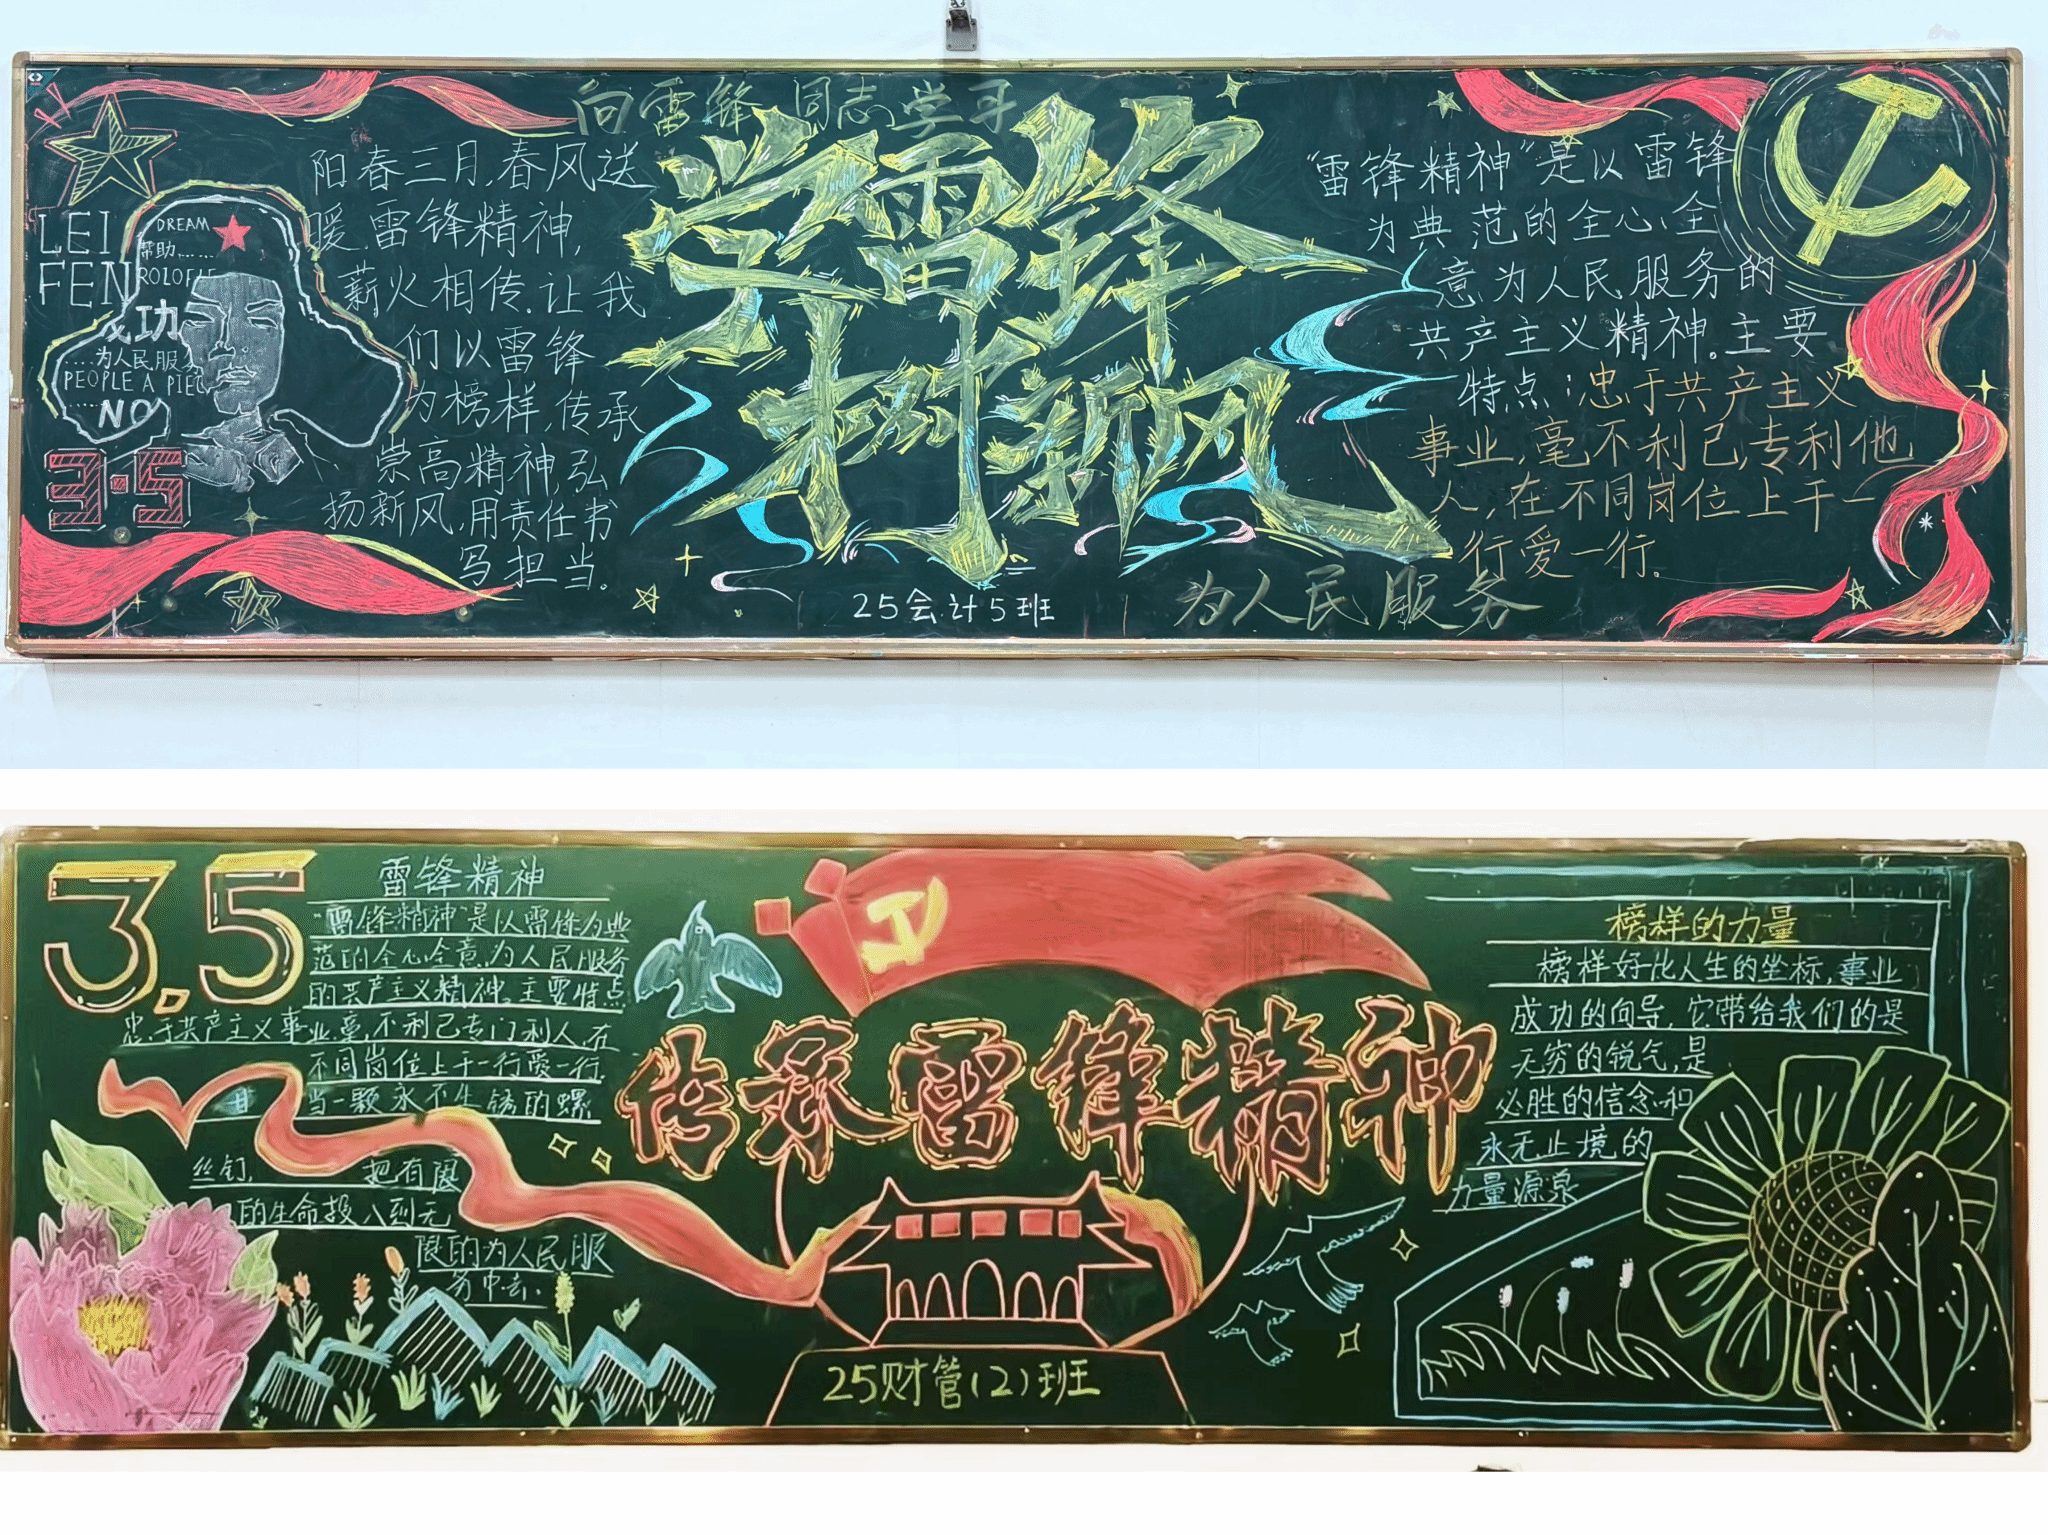 向雷锋同志学习
学雷锋
树新风
LEI
FEN
DREAM
帮助......
成功
....为人民服务
PEOPLE A PIEC
.....
NO
3·5
阳春三月,春风送
暖.雷锋精神,
薪火相传.让我
们以雷锋
为榜样,传承
崇高精神,弘
扬新风,用责任书
写担当。
25会计5班
为人民服务
“雷锋精神”是以雷锋
为典范的全心全
意为人民服务的
共产主义精神。主要
特点:忠于共产主义
事业,毫不利己,专利他
人,在不同岗位上干一
行爱一行.
3.5
雷锋精神
“雷锋精神”是以雷锋为典
范的全心全意为人民服务
的共产主义精神。主要特点
忠于共产主义事业,毫不利己专门利人,在
不同岗位上干一行爱一行.
当一颗永不生锈的螺
丝钉,把有限
的生命投入到无
限的为人民服
务中去.
传承雷锋精神
25财管(2)班
榜样的力量
榜样好比人生的坐标,事业
成功的向导,它带给我们的是
无穷的锐气,是
必胜的信念和
永无止境的
力量源泉